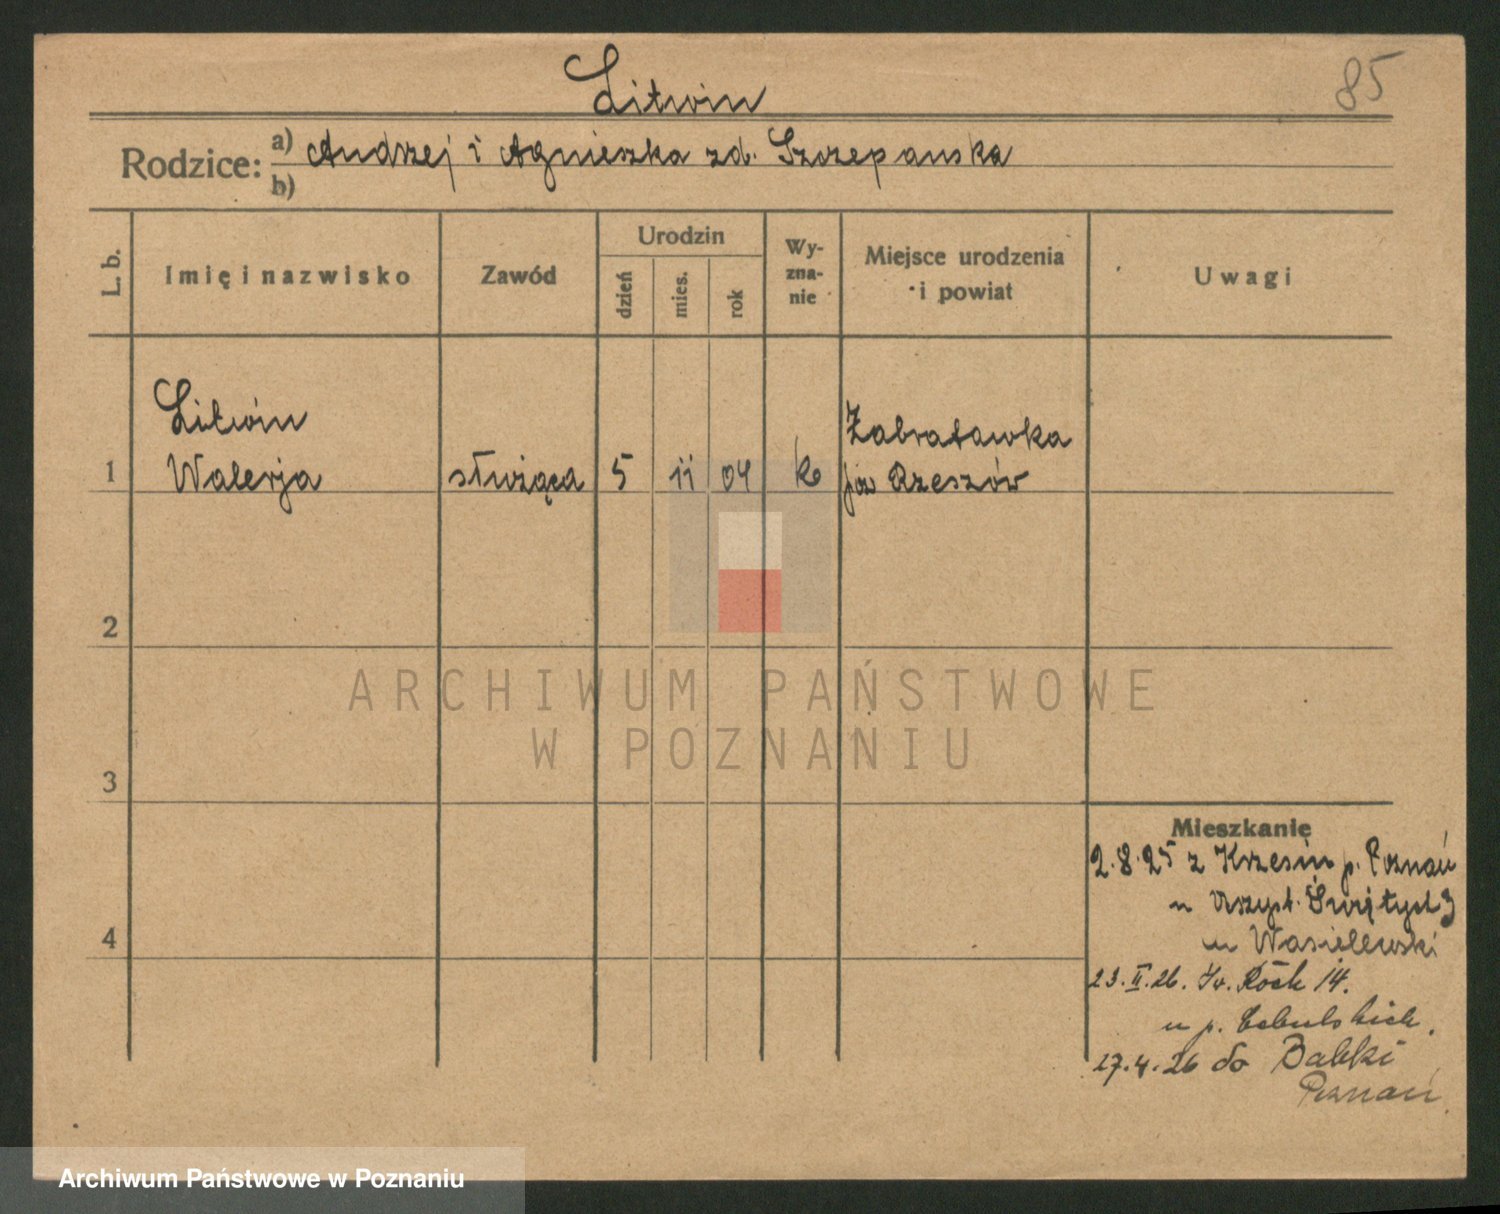 Litwin
85
Rodzice: a) Andrzej i Agnieszka zd. Szczepanska
b)
L. b.
Imię i nazwisko
Zawód
Urodzin
dzień
mies.
rok
Wy-
zna-
nie
Miejsce urodzenia
i powiat
Uwagi
Litwin
1 Walerja służąca 5 11 04 k Zabratawka
Rzeszów
2
3
4
ARCHIWUM PAŃSTWOWE
W POZNANIU
Mieszkanie
2.8.25 z Krzesin p. Poznań
Wszyst. Świętych 3
u Wasielewski
23.II.26. Św. Roch 14.
u p. Cebulskich.
17.4.26 do Babki
Poznań.
Archiwum Państwowe w Poznaniu